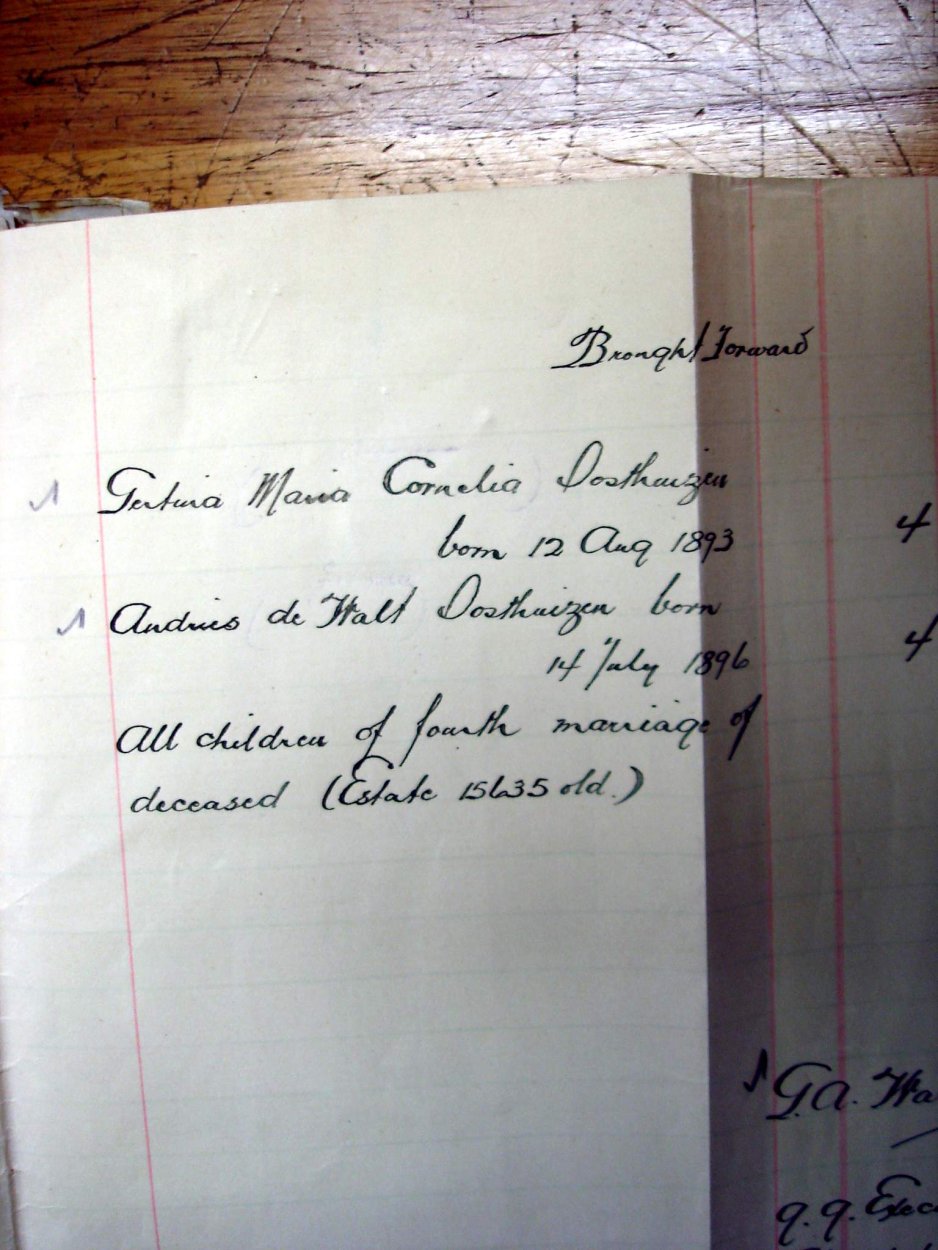 Brought Forward
Gertina Maria Cornelia Oosthuizen
born 12 Aug 1893
4
Andries de Walt Oosthuizen born
14 July 1896
4
All children of fourth marriage of
deceased (Estate 15635 old.)
G.A. Wa
q.q. Exec